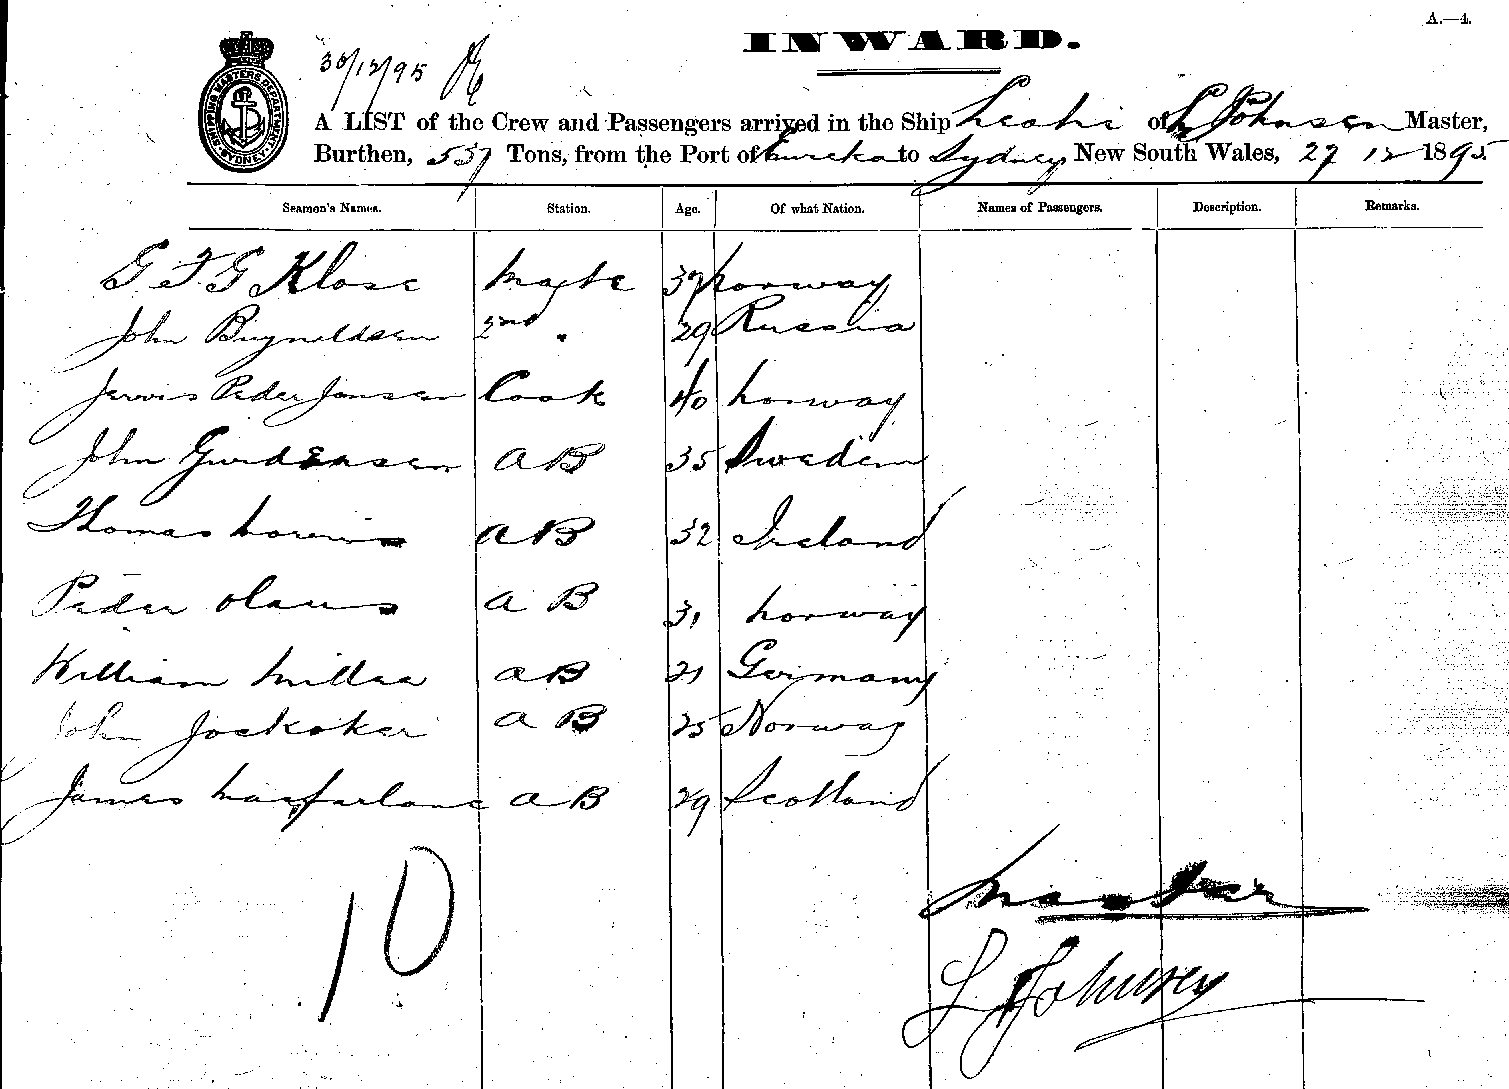 A.—4.
INWARD.
30/12/95
SHIPPING MASTERS DEPARTMENT SYDNEY
A LIST of the Crew and Passengers arrived in the Ship of L Johnsen Master,
Burthen, 537 Tons, from the Port of Eureka to Sydney New South Wales, 27 12 1895
Seamen's Names. Station. Age. Of what Nation. Names of Passengers. Description. Remarks.
G F G Klose Mate 37 Norway
John 2nd " 29 Russia
Peder Jansen Cook 40 Norway
John A B 35 Sweden
Thomas A B 32 Ireland
Peder Olaus A B 31 Norway
William Miller A B 21 Germany
John A B 25 Norway
James Macfarlane A B 29 Scotland
10
Master
L Johnsen